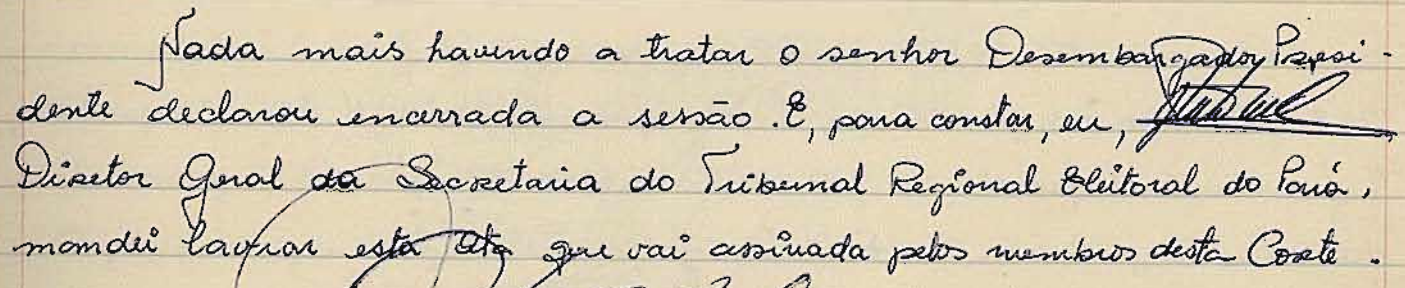 Nada mais havendo a tratar o senhor Desembargador Presi-
dente declarou encerrada a sessão. E, para constar, eu,
Diretor Geral da Secretaria do Tribunal Regional Eleitoral do Pará,
mandei lavrar esta ata que vai assinada pelos membros desta Corte.